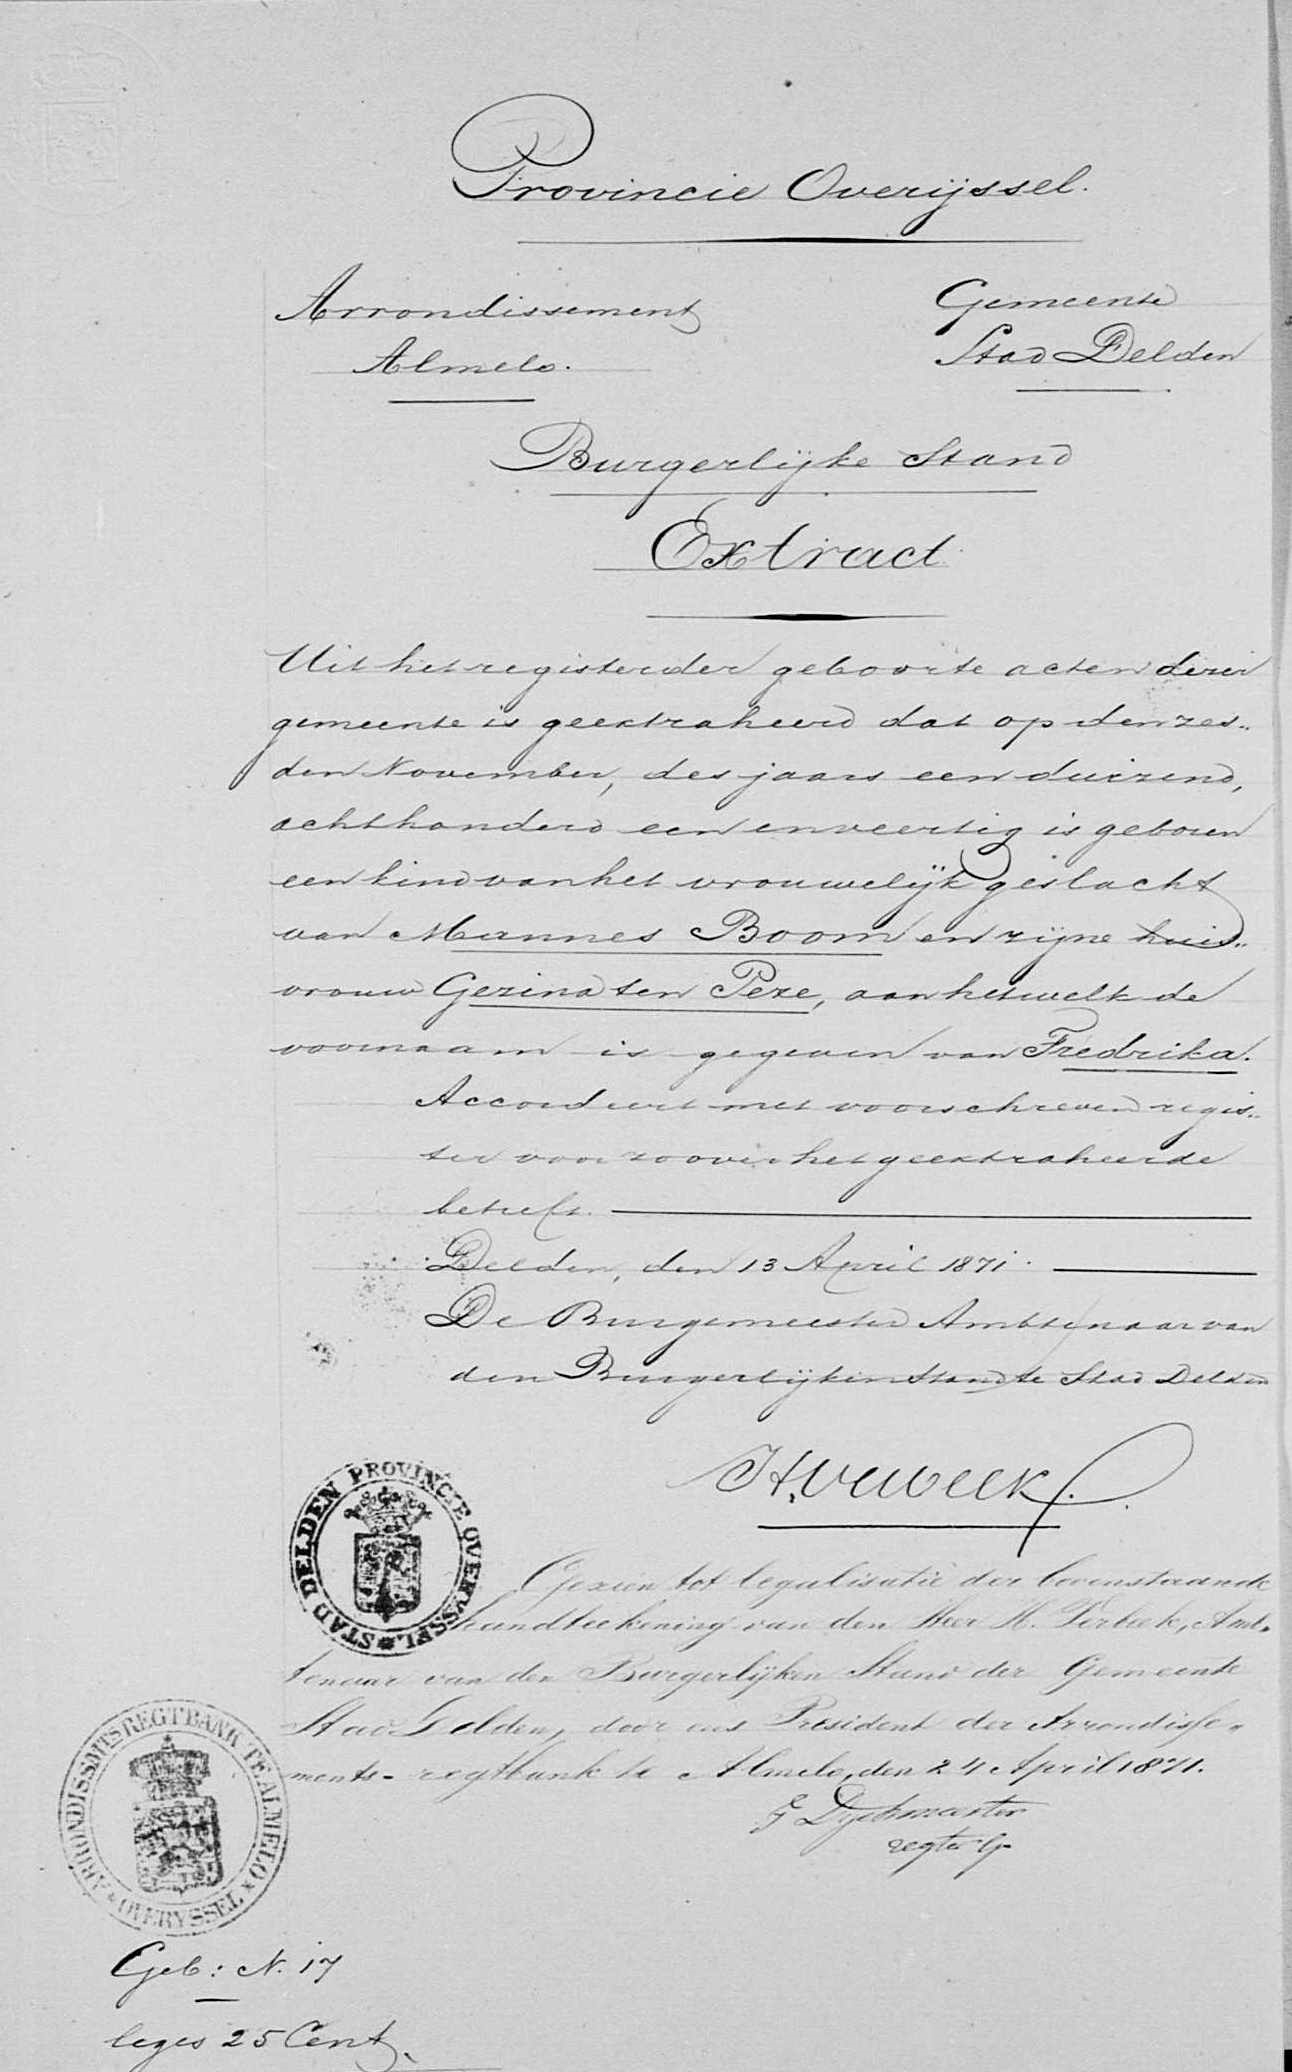 Provincie Overijssel.
Arrondissement
Almelo.
Gemeente
Stad Delden
Burgerlijke Stand
Extract
Uit het register der geboorte acten dezer
gemeente is geextraheerd dat op den zes..
den November, des jaars een duizend,
achthonderd een en veertig is geboren
een kind van het vrouwelijk geslacht
van Mannes Boom en zijne huis..
vrouw Gezina ten Peze, aan hetwelk de
voornaam is gegeven van Fredrika.
Accordeert met voorschreven regis..
ter voor zoover het geextraheerde
betreft.
Delden, den 13 April 1871.
De Burgemeester Ambtenaar van
den Burgerlijken Stand te Stad Delden
H. Verbeek
STAD DELDEN PROVINCIE OVERYSSEL
Gezien tot legalisatie der bovenstaande
handteekening van den Heer H. Verbeek, Amb-
tenaar van den Burgerlijken Stand der Gemeente
Stad Delden, door ons President der Arrondisse-
ments-regtbank te Almelo, den 24 April 1871.
regter
ARRONDISSMTS REGTBANK TE ALMELO OVERYSSEL
Geb: N. 17
leges 25 Cent.